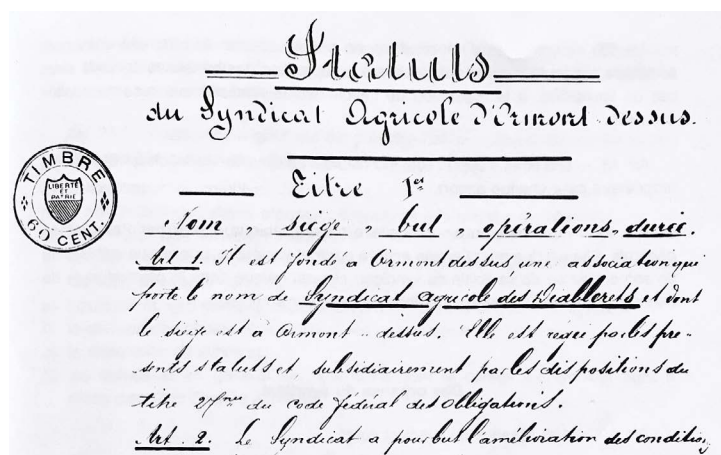 Statuts
du Syndicat Agricole d'Ormont-dessus.
TIMBRE
LIBERTÉ
ET
PATRIE
60 CENT.
Titre 1er
Nom, siège, but, opérations, durée.
Art 1. Il est fondé à Ormont dessus une association qui
porte le nom de Syndicat agricole des Diablerets et dont
le siège est à Ormont-dessus. Elle est régie par les pré-
sents statuts et, subsidiairement par les dispositions du
titre 27me du code fédéral des obligations.
Art. 2. Le Syndicat a pour but l'amélioration des conditions